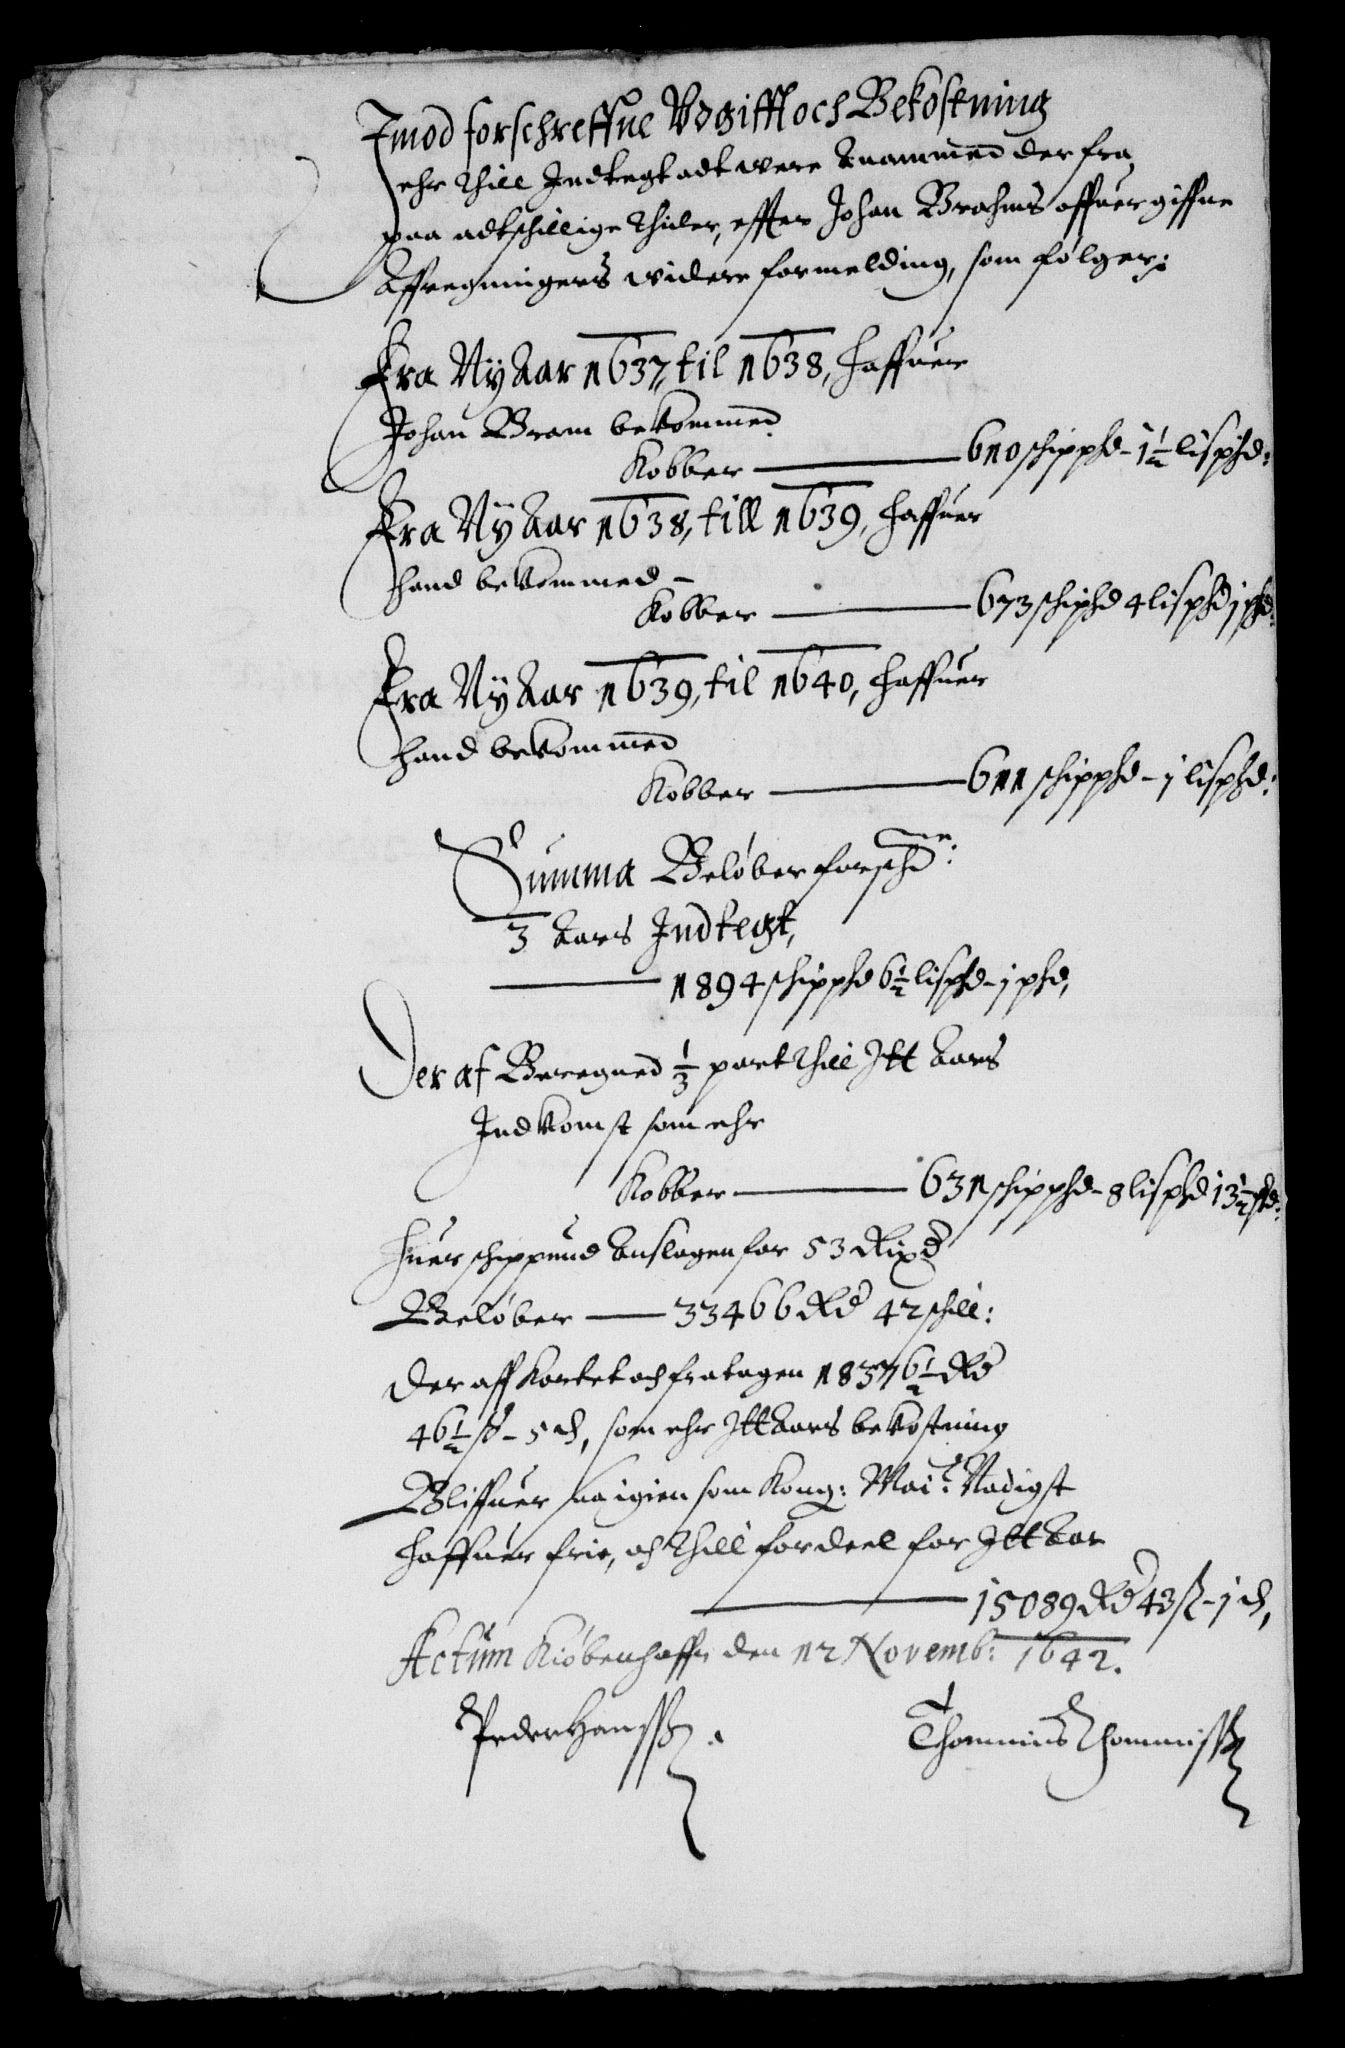 Imod forschreffne Vdgifft och Bekostning
ehr thill Indtegt adt were Anammed der fra,
paa adtschillige thider, effter Johan Brahms offuergiffne
Affregningers widere formelding, som følger:
Fra Ny Aar 1637, til 1638, haffuer
Johan Bram bekommed
Kobber — 610 schippd - 1½ lispd:
Fra Ny Aar 1638, till 1639, haffuer
hand bekommed -
Kobber — 673 schipd 4 lispd 1 pd:
Fra Ny Aar 1639, til 1640, haffuer
hand bekommed
Kobber — 611 schippd - 1 lispd:
Summa Beløber forschne:
3 Aars Indtegt,
— 1894 schippd 6½ lispd - 1 pd,
Der af Beregned ⅓ part thill Itt Aars
Indkomst som ehr
Kobber — 631 schippd - 8 lispd 13½ pd:
huer schippund Anslagen for 53 Rixd
Beløber — 33466 Rd 42 schill:
Der aff Kortet och fratagen 18376½ Rd
46½ ß - 5 d, som ehr Itt Aars bekostning
Bliffuer saa igien som Kong: Mait: Nadigst
haffuer frie, och thill fordeel for Itt Aar
— 15089 Rd 43 ß - 1 d,
Actum Kiøbenhaffn den 12 Novemb: 1642.
Peder Hanssøn
Thommis Thommissøn